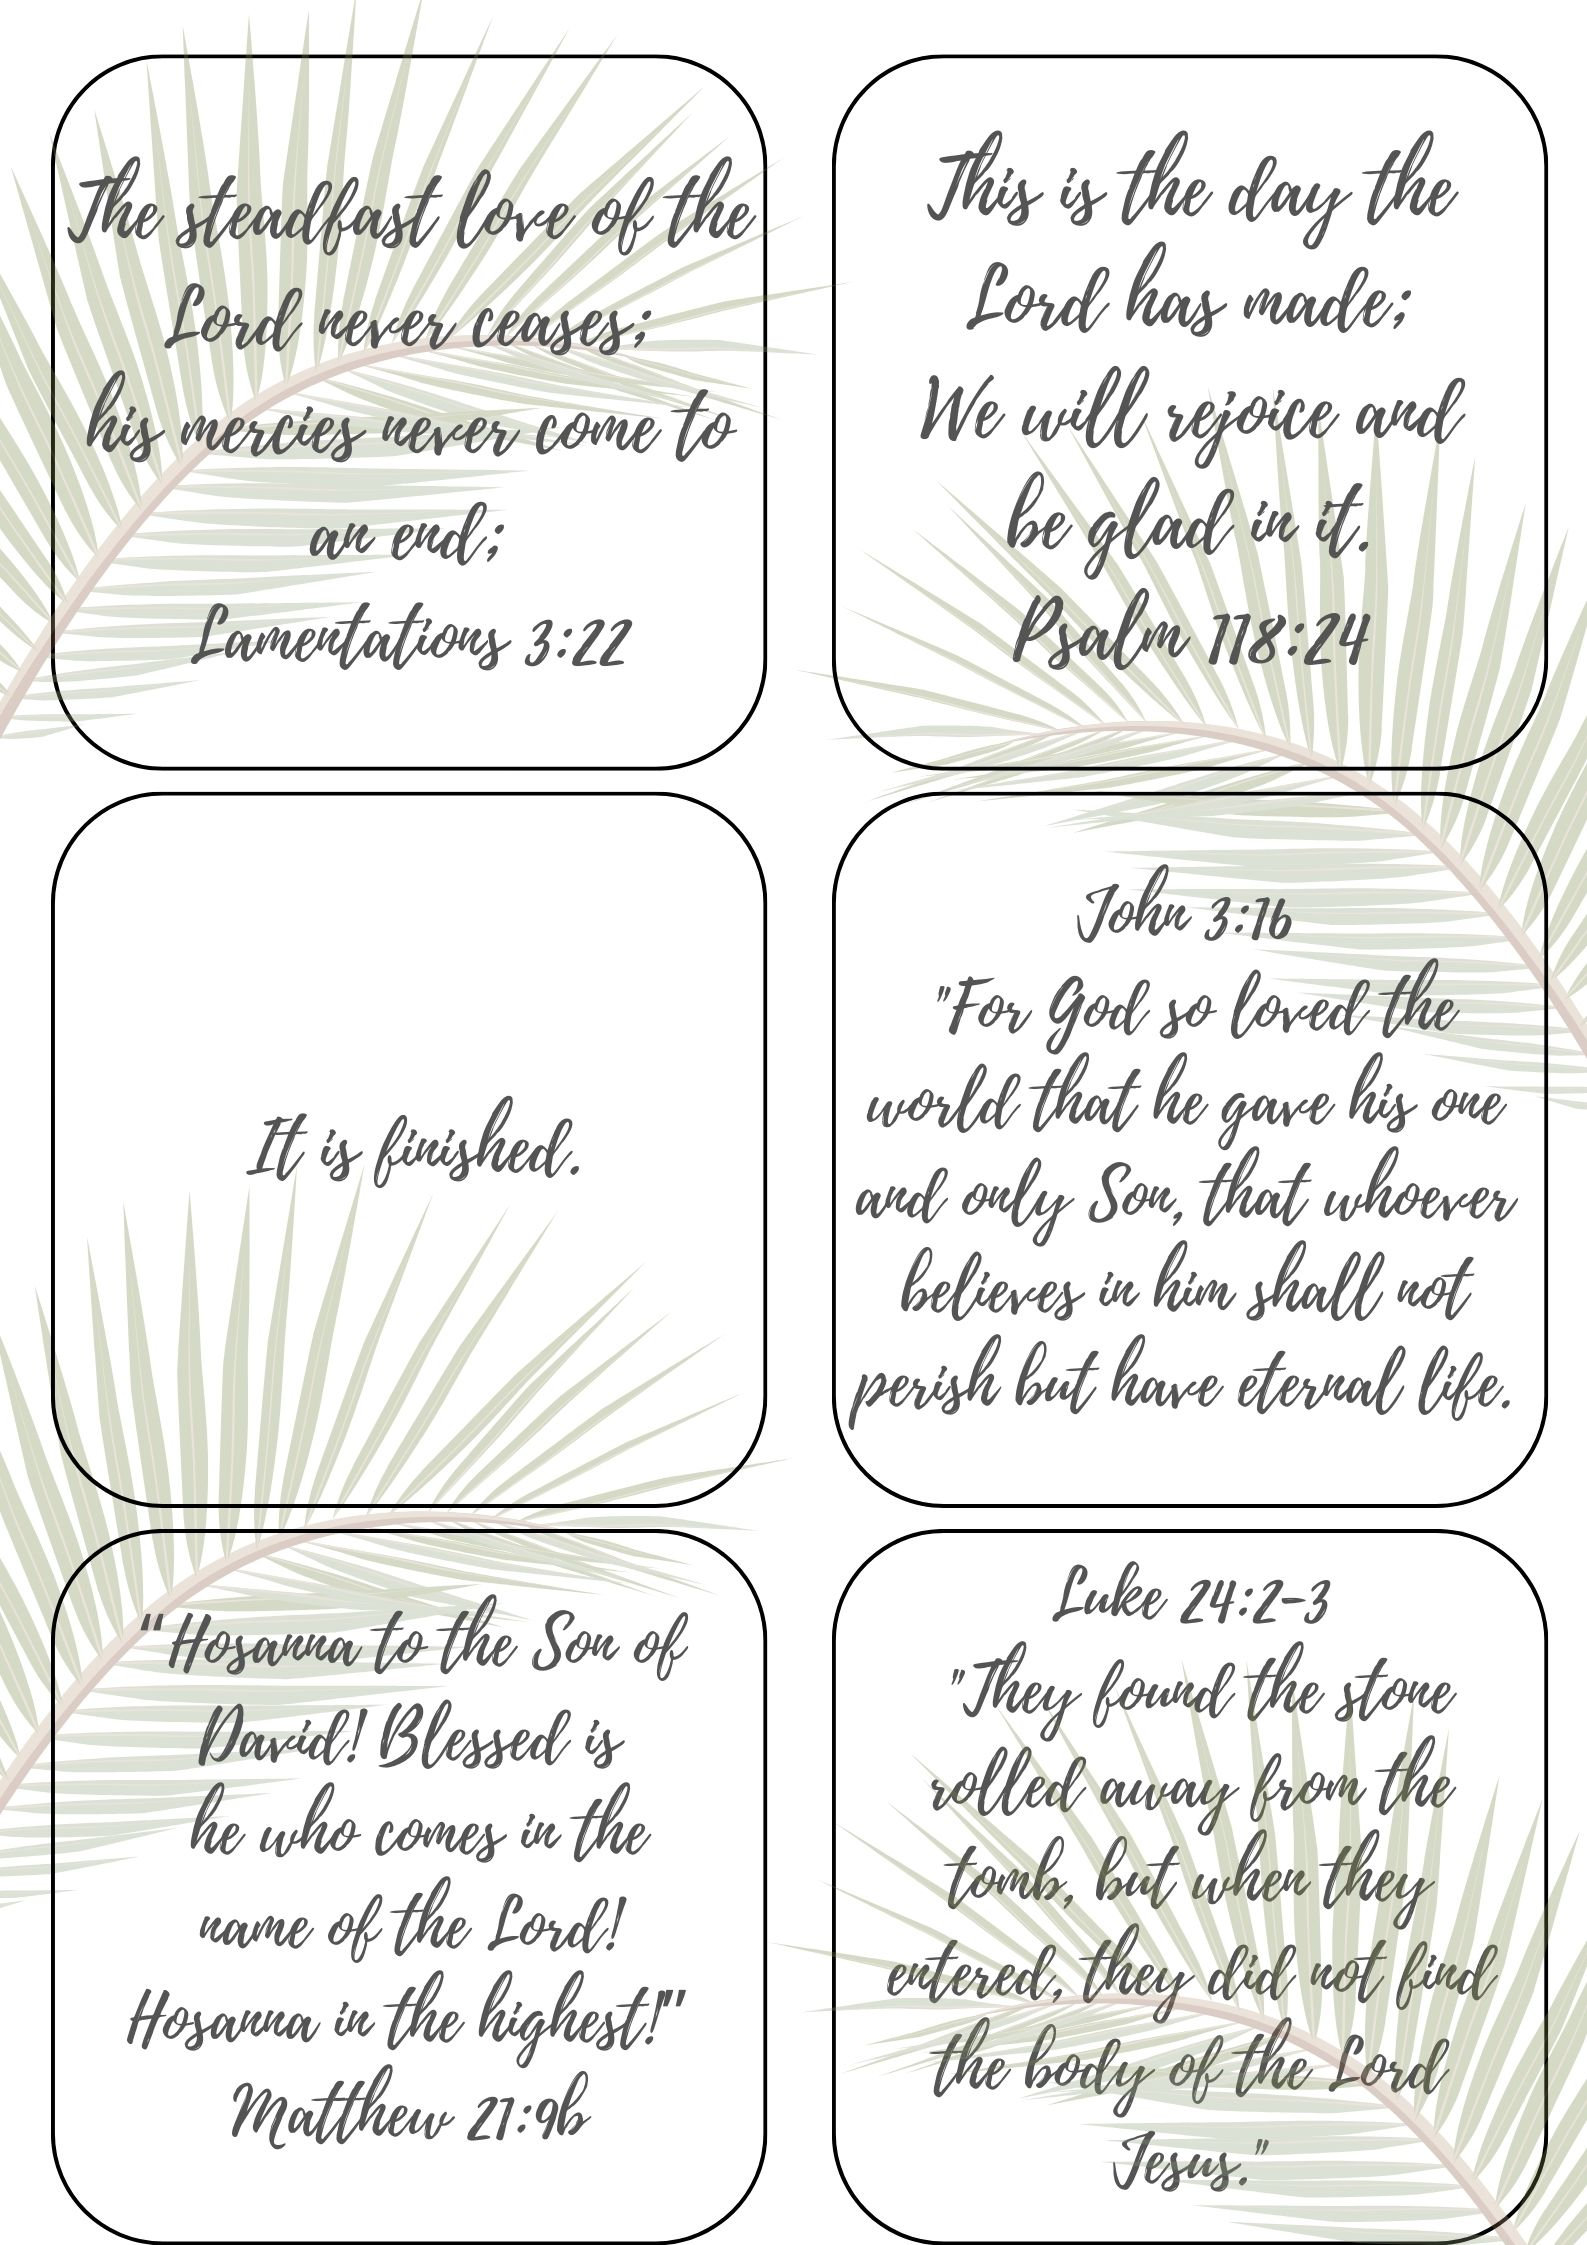 The steadfast love of the
Lord never ceases;
his mercies never come to
an end;
Lamentations 3:22
This is the day the
Lord has made;
We will rejoice and
be glad in it.
Psalm 118:24
It is finished.
John 3:16
"For God so loved the
world that he gave his one
and only Son, that whoever
believes in him shall not
perish but have eternal life.
"Hosanna to the Son of
David! Blessed is
he who comes in the
name of the Lord!
Hosanna in the highest!"
Matthew 21:9b
Luke 24:2-3
"They found the stone
rolled away from the
tomb, but when they
entered, they did not find
the body of the Lord
Jesus."